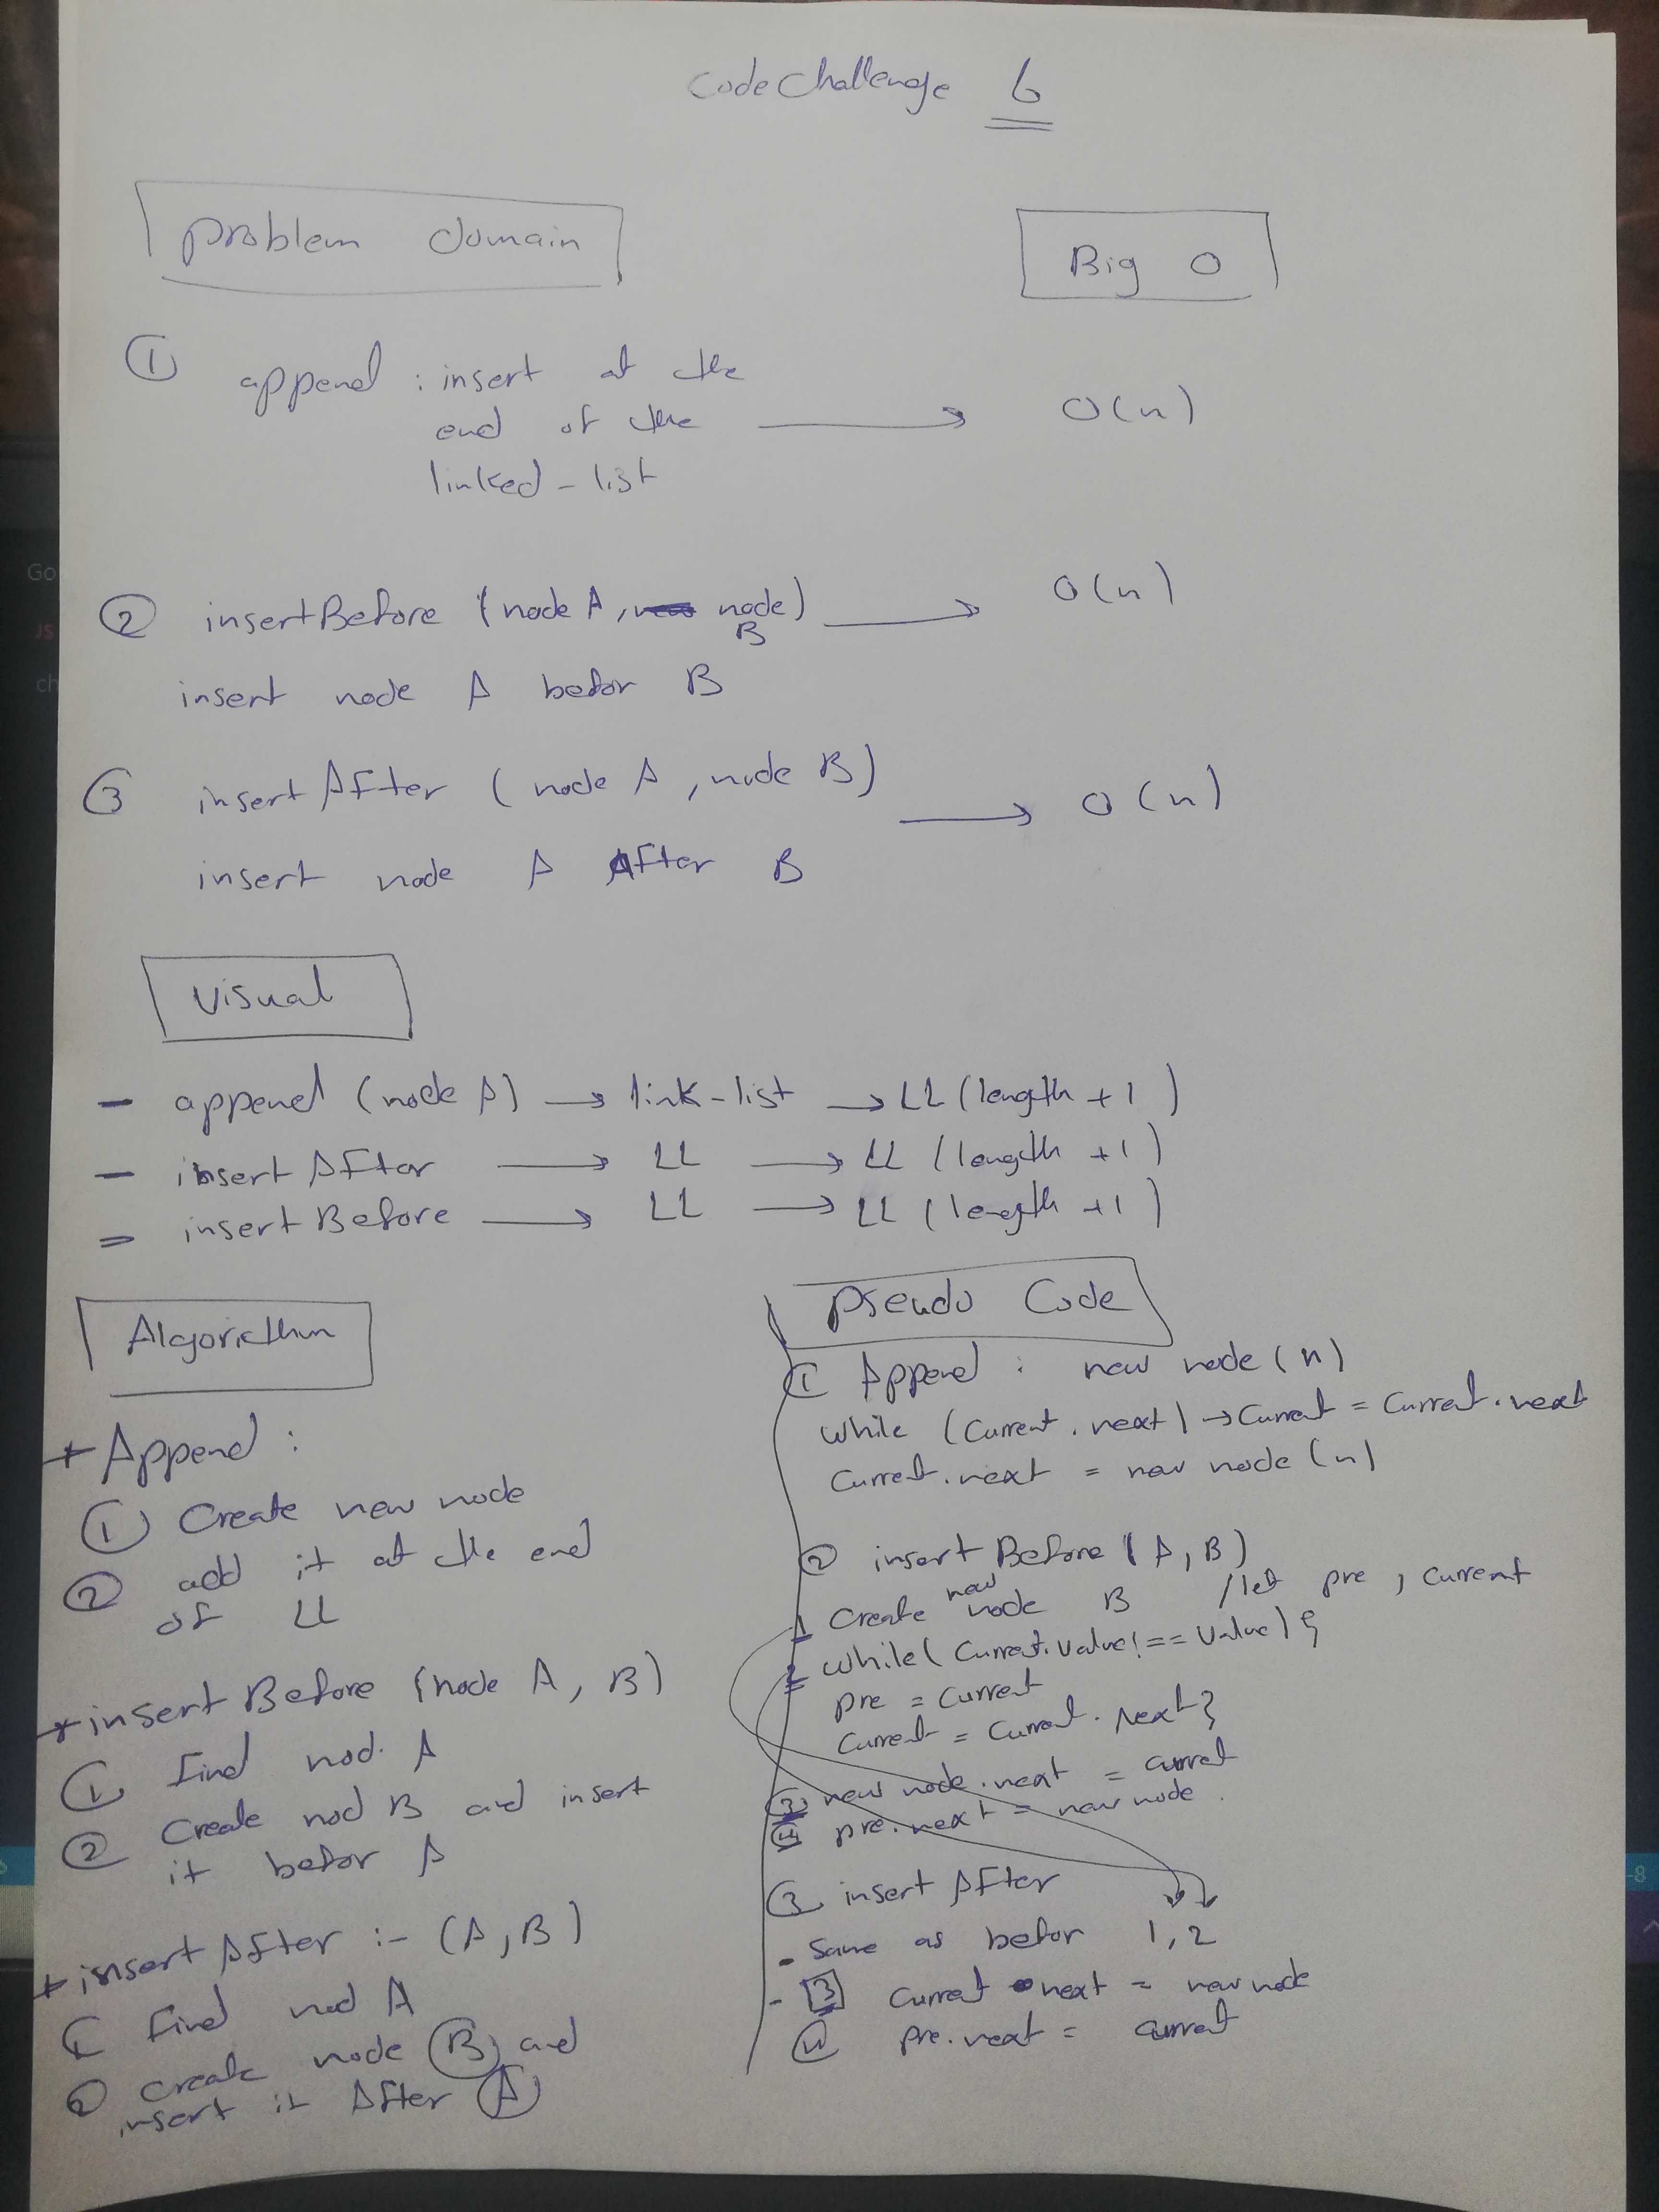 Code Challenge 6
Problem domain
Big O
① append : insert at the
end of the → O(n)
linked - list
② insertBefore (node A, node) → O(n)
B
insert node A befor B
③ insert After ( node A , node B) → O(n)
insert node A After B
Visual
- append (node A) → link - list → LL (length + 1)
- insert After → LL → LL (length +1)
= insert Before → LL → LL (length +1)
Algorithm
+ Append :
① Create new node
② add it at the end
of LL
* insert Before (node A, B)
① find nod A
② Create nod B and insert
it befor A
* insert After :- (A, B)
① find nod A
② create node B and
insert it After A
Pseudo Code
① Append : new node (n)
while (Current . next) → Current = Current . next
Current . next = new node (n)
② insert Before (A, B)
new
1 Create node B /let pre , current
2 while( Current.value !== value) {
pre = current
Current = Current . next }
③ new node.next = current
④ pre.next = new node .
③ insert After
- Same as befor 1, 2
- 3 Current . next = new node
④ pre.next = current
Go
JS
ch
-8